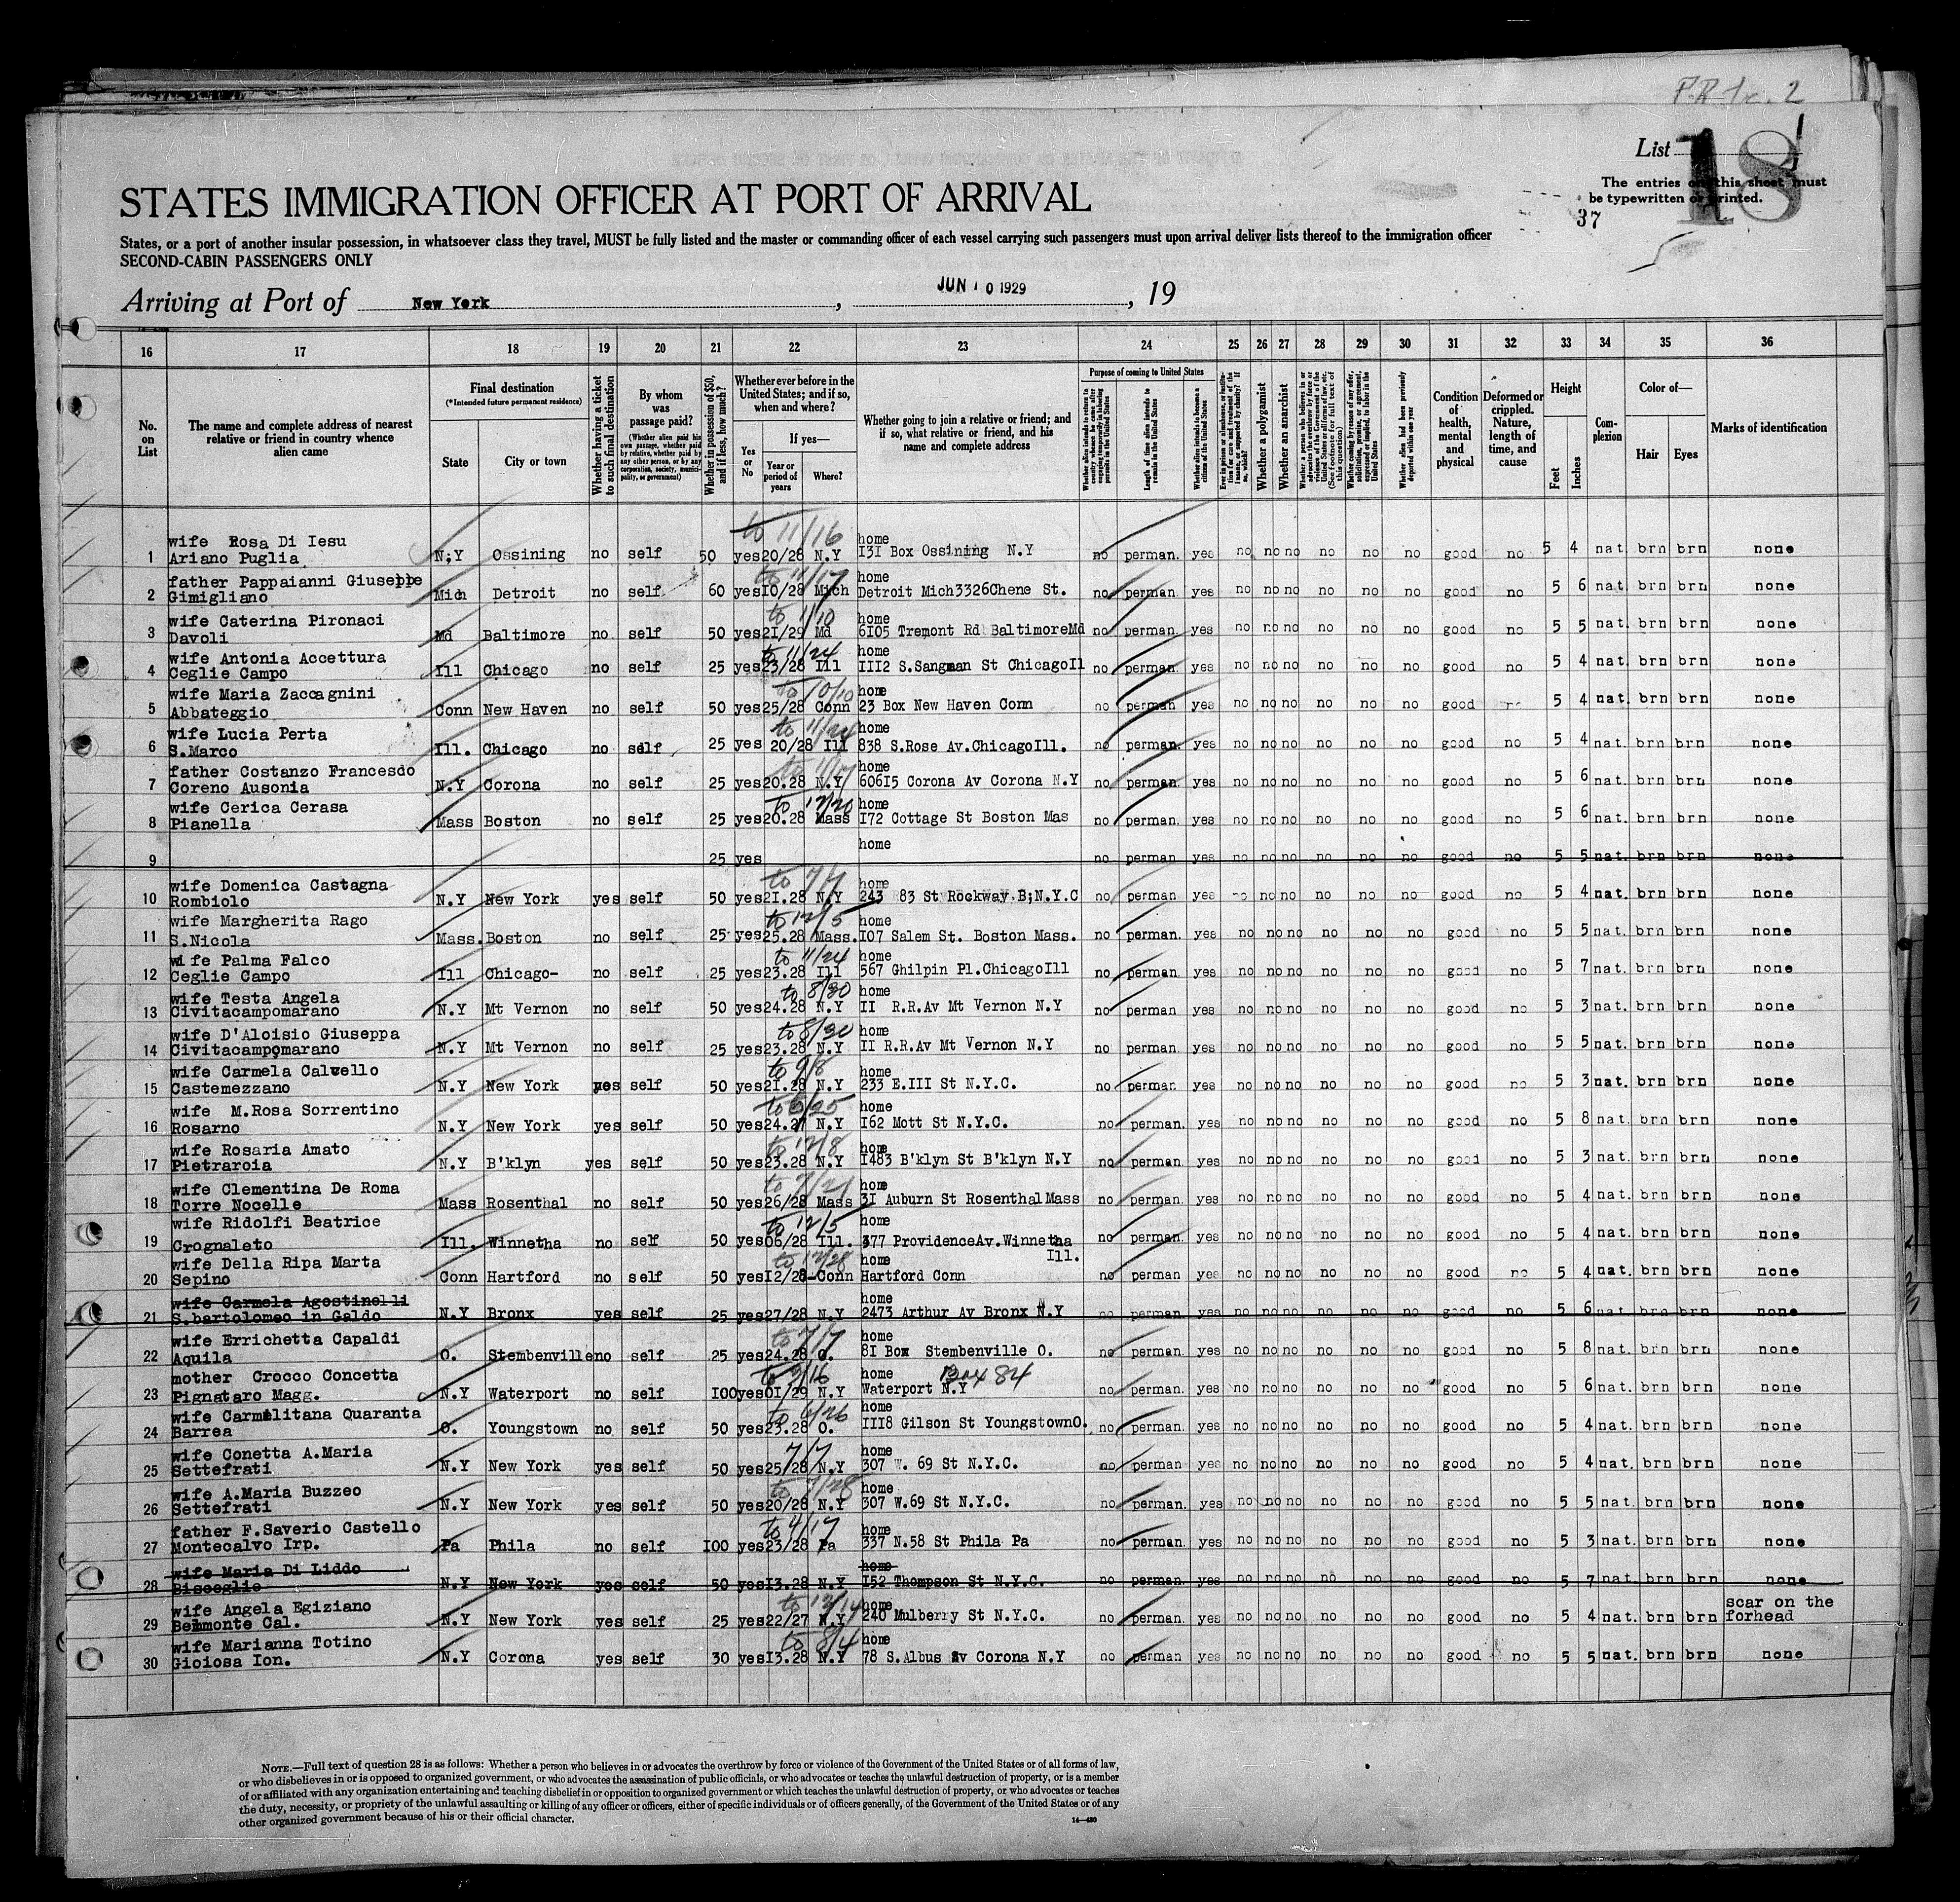 P.R. 2
List 18
The entries on this sheet must
be typewritten or printed.
37
STATES IMMIGRATION OFFICER AT PORT OF ARRIVAL
States, or a port of another insular possession, in whatsoever class they travel, MUST be fully listed and the master or commanding officer of each vessel carrying such passengers must upon arrival deliver lists thereof to the immigration officer
SECOND-CABIN PASSENGERS ONLY
Arriving at Port of New York, JUN 10 1929, 19
16 17 18 19 20 21 22 23 24 25 26 27 28 29 30 31 32 33 34 35 36
No. on List
The name and complete address of nearest relative or friend in country whence alien came
Final destination
(*Intended future permanent residence)
State
City or town
Whether having a ticket to such final destination
By whom was passage paid?
(Whether alien paid his own passage, whether paid by relative, whether paid by any other person, or by any corporation, society, municipality, or government)
Whether in possession of $50, and if less, how much?
Whether ever before in the United States; and if so, when and where?
Yes or No
If yes—
Year or period of years
Where?
Whether going to join a relative or friend; and if so, what relative or friend, and his name and complete address
Purpose of coming to United States
Whether alien intends to return to country whence he came after engaging temporarily in laboring pursuits in the United States
Length of time alien intends to remain in the United States
Whether alien intends to become a citizen of the United States
Ever in prison or almshouse, or institution for care and treatment of the insane, or supported by charity? If so, which?
Whether a polygamist
Whether an anarchist
Whether a person who believes in or advocates the overthrow by force or violence of the Government of the United States or all forms of law, etc. (See footnote for full text of this question)
Whether coming by reason of any offer, solicitation, promise, or agreement, expressed or implied, to labor in the United States
Whether alien had been previously deported within one year
Condition of health, mental and physical
Deformed or crippled. Nature, length of time, and cause
Height
Feet
Inches
Complexion
Color of—
Hair
Eyes
Marks of identification
to 11/16
wife Rosa Di Iesu home
1 Ariano Puglia N;Y Ossining no self 50 yes 20/28 N.Y I3I Box Ossining N.Y no perman. yes no no no no no no good no 5 4 nat. brn brn none
to 11/17
father Pappaianni Giuseppe home
2 Gimigliano Mich Detroit no self 60 yes I0/28 Mich Detroit Mich3326Chene St. no perman yes no no no no no no good no 5 6 nat. brn brn none
to 1/10
wife Caterina Pironaci home
3 Davoli Md Baltimore no self 50 yes 2I/29 Md 6I05 Tremont Rd BaltimoreMd no perman. yes no no no no no no good no 5 5 nat. brn brn none
to 11/24
wife Antonia Accettura home
4 Ceglie Campo Ill Chicago no self 25 yes 23/28 Ill III2 S.Sangman St ChicagoIl no perman. yes no no no no no no good no 5 4 nat. brn brn none
to 10/10
wife Maria Zaccagnini home
5 Abbateggio Conn New Haven no self 50 yes 25/28 Conn 23 Box New Haven Conn no perman yes no no no no no no good no 5 4 nat. brn brn none
to 11/24
wife Lucia Perta home
6 S.Marco Ill. Chicago no self 25 yes 20/28 Ill 838 S.Rose Av.ChicagoIll. no perman. yes no no no no no no good no 5 4 nat. brn brn none
to 11/17
father Costanzo Francesdo home
7 Coreno Ausonia N.Y Corona no self 25 yes 20.28 N.Y 606I5 Corona Av Corona N.Y no perman. yes no no no no no no good no 5 6 nat. brn brn none
to 12/20
wife Cerica Cerasa home
8 Pianella Mass Boston no self 25 yes 20.28 Mass I72 Cottage St Boston Mas no perman. yes no no no no no no good no 5 6 nat. brn brn none
home
9 25 yes no perman yes no no no no no no good no 5 5 nat. brn brn none
to 7/7
wife Domenica Castagna home
10 Rombiolo N.Y New York yes self 50 yes 2I.28 N.Y 243 83 St Rockway.B;N.Y.C no perman yes no no no no no no good no 5 4 nat. brn brn none
to 12/5
wife Margherita Rago home
11 S.Nicola Mass. Boston no self 25 yes 25.28 Mass. I07 Salem St. Boston Mass. no perman. yes no no no no no no good no 5 5 nat. brn brn none
to 11/24
wife Palma Falco home
12 Ceglie Campo Ill Chicago- no self 25 yes 23.28 Ill 567 Ghilpin Pl.ChicagoIll no perman. yes no no no no no no good no 5 7 nat. brn brn none
to 8/30
wife Testa Angela home
13 Civitacampomarano N.Y Mt Vernon no self 50 yes 24.28 N.Y II R.R.Av Mt Vernon N.Y no perman. yes no no no no no no good no 5 3 nat. brn brn none
to 8/30
wife D'Aloisio Giuseppa home
14 Civitacampomarano N.Y Mt Vernon no self 25 yes 23.28 N.Y II R.R.Av Mt Vernon N.Y no perman yes no no no no no no good no 5 5 nat. brn brn none
to 9/8
wife Carmela Calvello home
15 Castemezzano N.Y New York yes self 50 yes 2I.28 N.Y 233 E.III St N.Y.C. no perman. yes no no no no no no good no 5 3 nat. brn brn none
to 6/25
wife M.Rosa Sorrentino home
16 Rosarno N.Y New York yes self 50 yes 24.27 N.Y I62 Mott St N.Y.C. no perman. yes no no no no no no good no 5 8 nat. brn brn none
to 12/8
wife Rosaria Amato home
17 Pietraroia N.Y B'klyn yes self 50 yes 23.28 N.Y I483 B'klyn St B'klyn N.Y no perman. yes no no no no no no good no 5 3 nat. brn brn none
to 7/21
wife Clementina De Roma home
18 Torre Nocelle Mass Rosenthal no self 50 yes 26/28 Mass 3I Auburn St Rosenthal Mass no perman. yes no no no no no no good no 5 4 nat. brn brn none
to 12/5
wife Ridolfi Beatrice home
19 Crognaleto Ill. Winnetha no self 50 yes 06/28 Ill. 377 ProvidenceAv.Winnetha no perman. yes no no no no no no good no 5 4 nat. brn brn none
Ill.
to 12/28
wife Della Ripa Marta home
20 Sepino Conn Hartford no self 50 yes I2/28-Conn Hartford Conn no perman yes no no no no no no good no 5 4 nat. brn brn none
wife Carmela Agostinelli home
21 S.bartolomeo in Galdo N.Y Bronx yes self 25 yes 27/28 N.Y 2473 Arthur Av Bronx N.Y no perman. yes no no no no no no good no 5 6 nat. brn brn none
to 7/7
wife Errichetta Capaldi home
22 Aquila O. Stembenville no self 25 yes 24.28 O. 8I Box Stembenville O. no perman. yes no no no no no no good no 5 8 nat. brn brn none
to 3/16
mother Crocco Concetta home Box 84
23 Pignataro Magg. N.Y Waterport no self I00 yes 0I/29 N.Y Waterport N.Y no perman. yes no no no no no no good no 5 6 nat. brn brn none
to 6/26
wife Carmelitana Quaranta home
24 Barrea O. Youngstown no self 50 yes 23.28 O. III8 Gilson St YoungstownO. no perman. yes no no no no no no good no 5 4 nat. brn brn none
7/7
wife Conetta A.Maria home
25 Settefrati N.Y New York yes self 50 yes 25/28 N.Y 307 W. 69 St N.Y.C. no perman. yes no no no no no no good no 5 4 nat. brn brn none
to 7/28
wife A.Maria Buzzeo home
26 Settefrati N.Y New York yes self 50 yes 20/28 N.Y 307 W.69 St N.Y.C. no perman. yes no no no no no no good no 5 5 nat. brn brn none
to 4/17
father F.Saverio Castello home
27 Montecalvo Irp. Pa Phila no self I00 yes 23/28 Pa 337 N.58 St Phila Pa no perman. yes no no no no no no good no 5 3 nat. brn brn none
wife Maria Di Liddo home
28 Bisceglie N.Y New York yes self 50 yes I3.28 N.Y I52 Thompson St N.Y.C. no perman. yes no no no no no no good no 5 7 nat. brn brn none
to 12/14
wife Angela Egiziano home scar on the
29 Belmonte Cal. N.Y New York yes self 25 yes 22/27 N.Y 240 Mulberry St N.Y.C. no perman. yes no no no no no no good no 5 4 nat. brn brn forhead
to 8/4
wife Marianna Totino home
30 Gioiosa Ion. N.Y Corona yes self 30 yes I3.28 N.Y 78 S.Albus Av Corona N.Y no perman yes no no no no no no good no 5 5 nat. brn brn none
NOTE.—Full text of question 28 is as follows: Whether a person who believes in or advocates the overthrow by force or violence of the Government of the United States or of all forms of law,
or who disbelieves in or is opposed to organized government, or who advocates the assassination of public officials, or who advocates or teaches the unlawful destruction of property, or is a member
of or affiliated with any organization entertaining and teaching disbelief in or opposition to organized government or which teaches the unlawful destruction of property, or who advocates or teaches
the duty, necessity, or propriety of the unlawful assaulting or killing of any officer or officers, either of specific individuals or of officers generally, of the Government of the United States or of any
other organized government because of his or their official character.
14—430